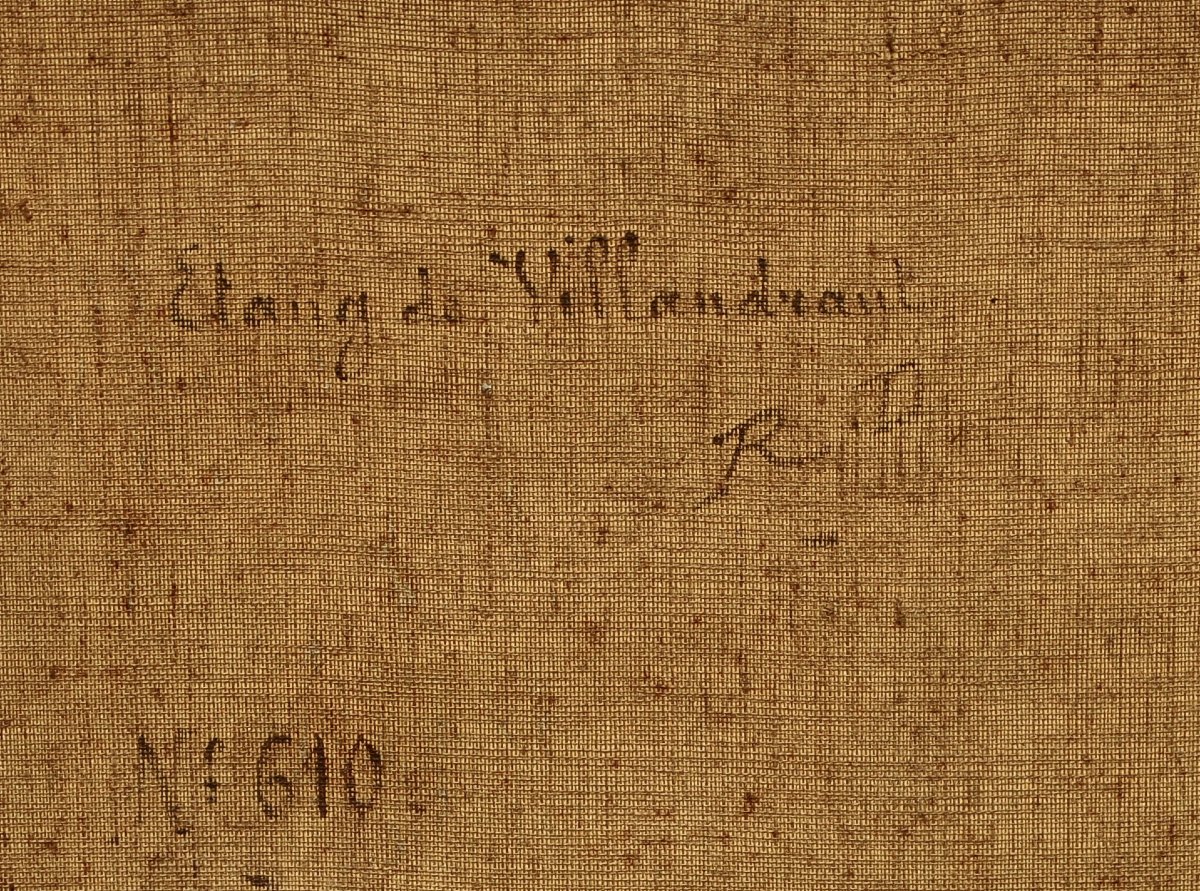 Etang de Villandraut
R
Nº 610